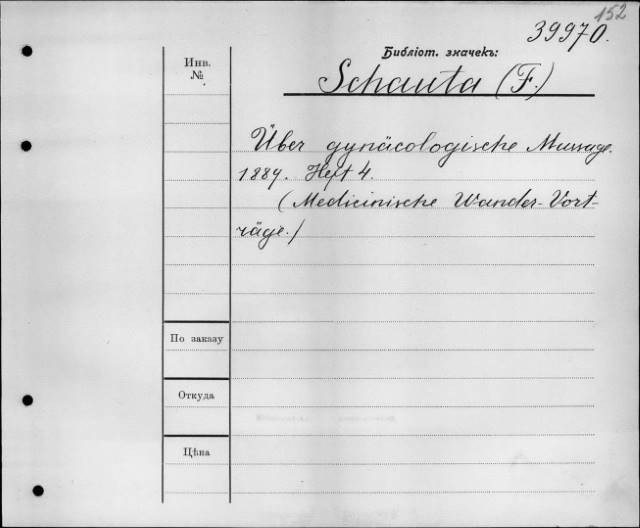 152
39970.
Инв.
№
Библіот. значекъ:
Schauta (F.)
Über gynäcologische Massage.
1889. Heft 4.
(Medicinische Wander-Vort-
räge.)
По заказу
Откуда
Цѣна